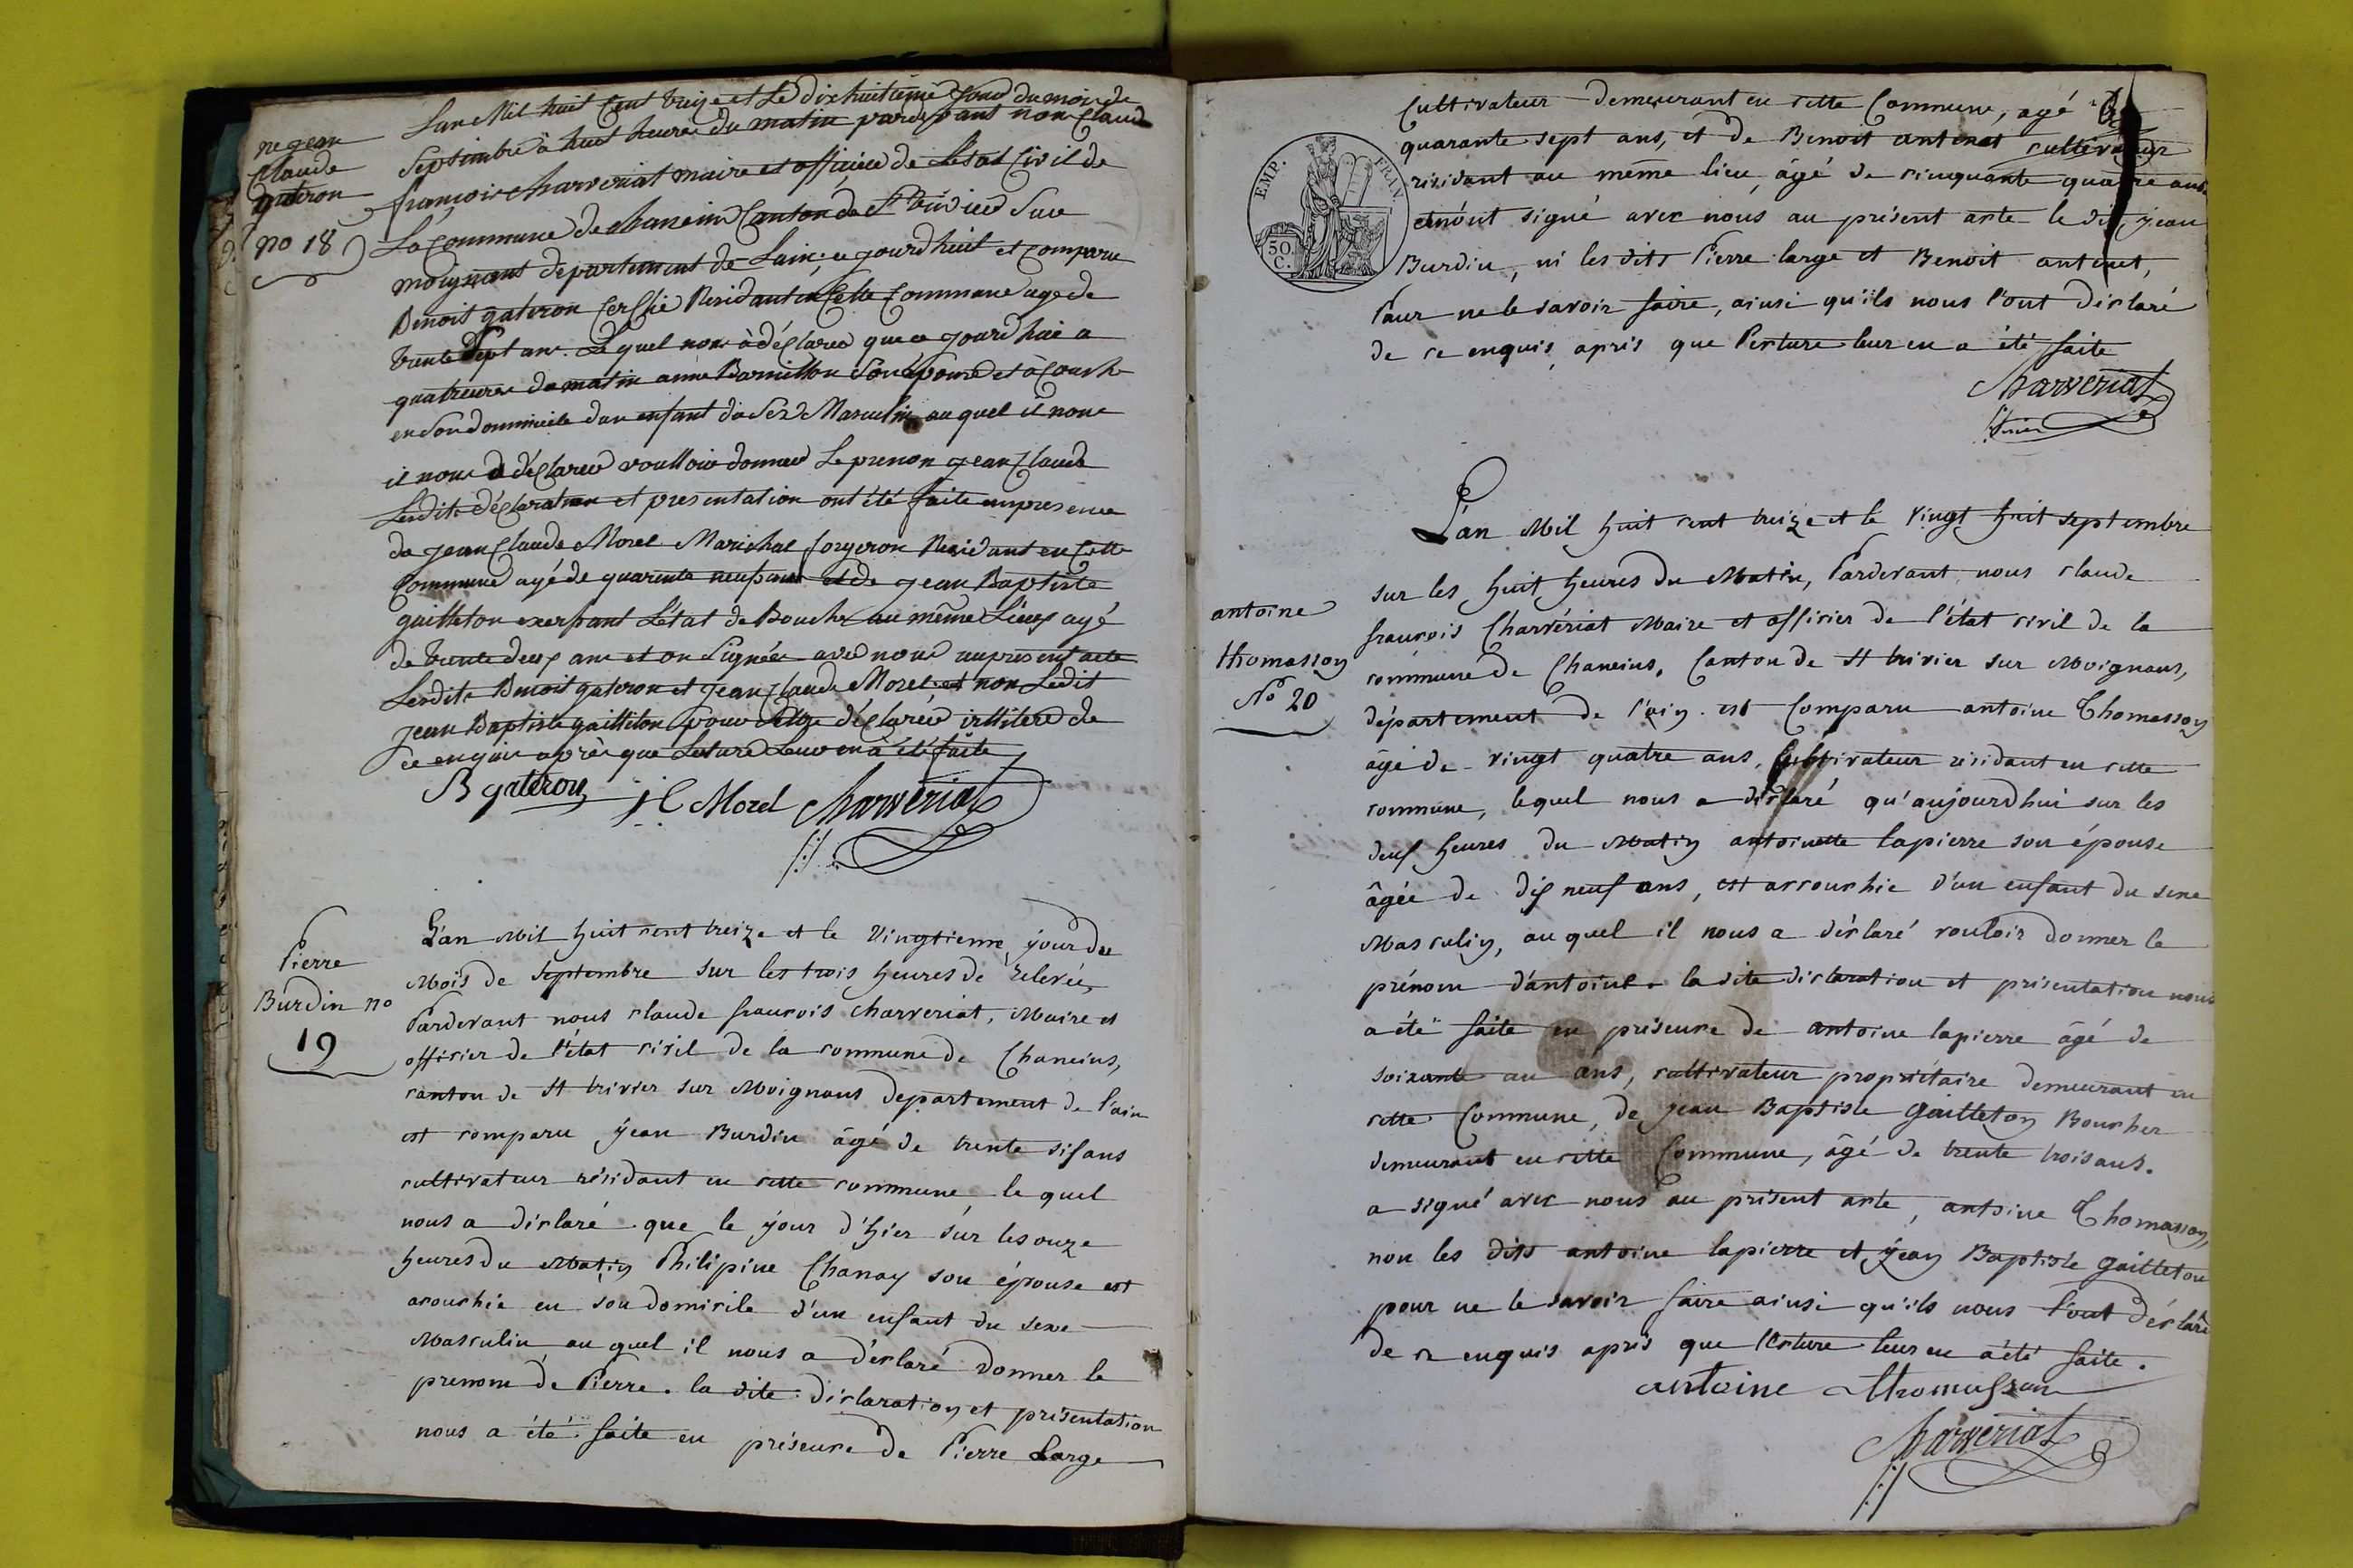 ne jean
Claude
gateron
no 18
Lan Mil huit Cent treize et Le dix huitieme Jour du mois de
Septembre à huit heures du matin pardevant nous Claude
françois charveriat maire et officiée de Létat Civil de
La Commune de chaneins Canton de St trivied Sur
moignant departement de Lain, ce jourd'huit et comparu
Benoit gateron Residant en Cette Commune age de
trente Sept ans. Le quel nous à déClareé que ce jourd'hui a
quatreures du matin anne son épouse et àCouché
en Son dommicile dun enfant du Sexe Masculin au quel il nous
il nous a déClareé voulloir donneé Le prenon jean Claude
Lesdite déClaration et presentation ont été faite enpresence
de jean Claude Morel Marichal forgeron Residant en Cette
Commune agé de quarente neuf ans et de jean Baptiste
gailleton exersant L'état de Boucher au même Lieux agé
de trente deux ans et on Signée avec nous aupresent acte
Lesdits Benoit gateron et jean Claude Morel et non Ledit
jean Baptiste gailliton pour déClareé illitere de
ce enquis après que Lesture Leur en à été faite
B gateron j C Morel Charveriat
Pierre
Burdin no
19
L'an Mil huit cent treize et le vingtieme jour du
Mois de Septembre sur les trois heures de relevée,
Pardevant nous claude francois charveriat, Maire et
officier de l'état civil de la commune de Chaneins,
canton de st trivier sur Moignans departement de l'ain
est comparu jean Burdin âgé de trente six ans
cultivateur résidant en cette commune, le quel
nous a déclaré que le jour d'hier sur les onze
heures du Matin Philipine Chanay son épouse est
acouchée en son domicile d'un enfant du sexe
Masculin au quel il nous a déclaré donner le
prenom de Pierre. la dite déclaration et présentation
nous a été faite en présence de Pierre Large
EMP. FRAN.
50
C.
Cultivateur demeurant en cette Commune, agé de
quarante sept ans, et de Benoit antenet cultivateur
résidant au même lieu, âgé de cinquante quatre ans
et n'ont signé avec nous au présent acte le dit jean
Burdin, ni les dits Pierre large et Benoit antenet,
Pour ne le savoir faire, ainsi qu'ils nous l'ont déclaré
de ce enquis après que Lecture leur en a été faite
Charveriat
antoine
thomasson
No 20
L'an Mil huit cent treize et le vingt huit septembre
sur les huit heures du Matin, Pardevant nous claude
francois Charvériat Maire et officier de l'état civil de la
commune de Chaneins, Canton de st trivier sur Moignans,
département de l'ain. est Comparu antoine Thomasson
âgé de vingt quatre ans, Cultivateur résidant en cette
commune, lequel nous a déclaré qu'aujourd'hui sur les
deux heures du Matin antoinette lapierre son épouse
âgée de dix neuf ans, est accouchée d'un enfant du sexe
Masculin, au quel il nous a déclaré vouloir donner le
prénom d'antoine. la dite déclaration et présentation nous
a été faite en présence de antoine lapierre âgé de
soixante un ans, cultivateur propriétaire demeurant en
cette Commune, de jean Baptiste Gailleton Boucher
demeurant en cette Commune, âgé de trente trois ans.
a signé avec nous au présent acte, antoine Thomasson,
non les dits antoine lapierre et jean Baptiste Gailleton
pour ne le savoir faire ainsi qu'ils nous l'ont déclaré
de ce enquis après que lecture leur en a été faite.
antoine thomasson
Charveriat